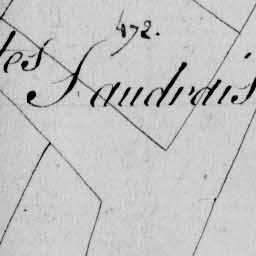 472.
les Saudrais